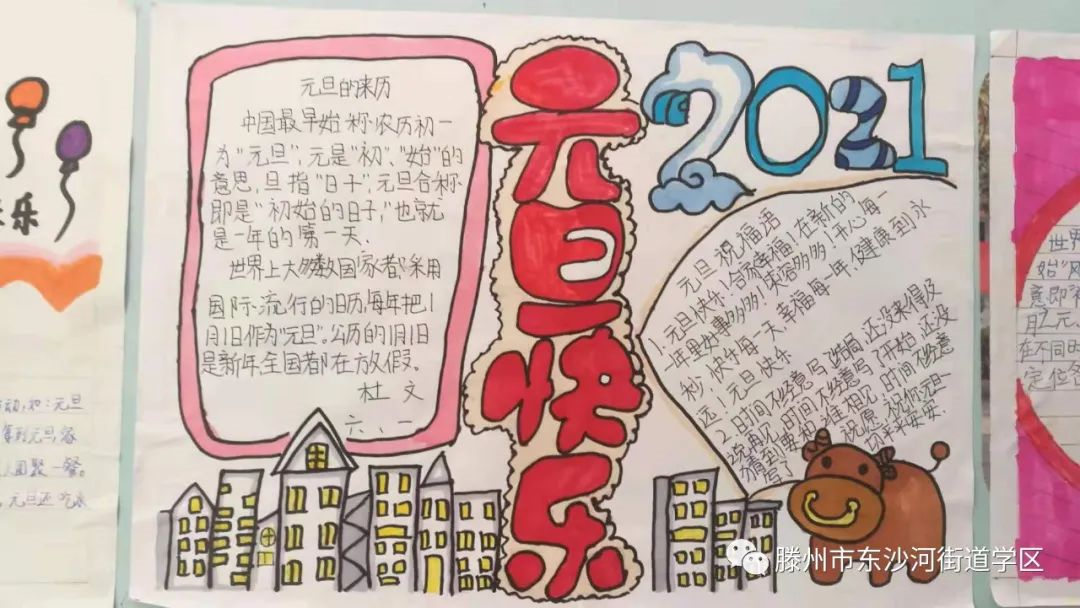 元旦的来历
中国最早始称农历初一
为“元旦”，元是“初”、“始”的
意思，旦指“日子”，元旦合称
即是“初始的日子”，也就
是一年的第一天、
世界上大多数国家者采用
国际流行的日历，每年把1
月1日作为“元旦”。公历的1月1日
是新年，全国都在放假。
杜文
六、一
元旦快乐
2021
元旦祝福语
1、元旦快乐！合家幸福！在新的
一年里好事多多！笑容多多！开心每一
秒，快乐每一天，幸福每一年，健康到永
远！元旦快乐
2、时间不经意写了结局，还没来得及
说再见，时间不经意写了开始，还没
看到要和谁相见，时间不经意
写了祝愿，祝你元旦
平平安安
乐
动，如：元旦
拿到元旦，家
人团聚一餐。
元旦还吃
世界
始“
意即
月
在不同
定位
滕州市东沙河街道学区